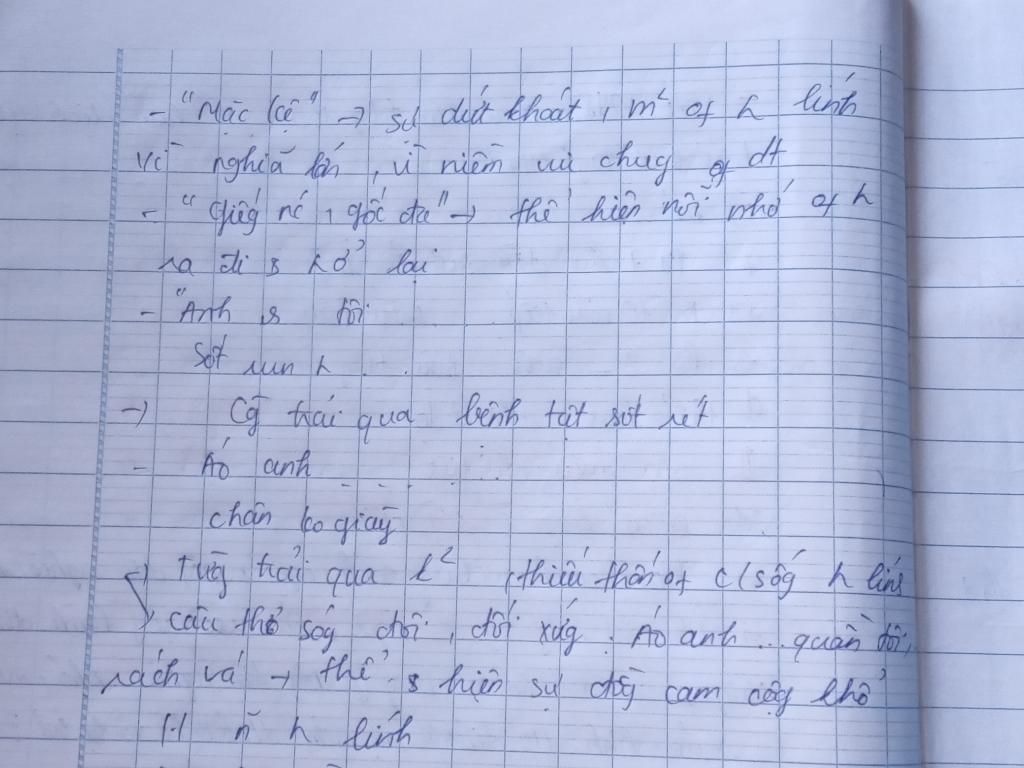 - "Mặc kệ" → sự dứt khoát, m² of h lính
vì nghĩa lớn, vì niềm vui chug of dt
- "Giếg nc, gốc đa" → thể hiện nỗi nhớ of h
ra đi s trở lại
- "Anh s tôi
Sốt run h . .
→ Cg trải qua bệnh tật sốt rét
- Áo anh . . . . .
chân ko giày
→ Từg trải qua k² , thiếu thốn of c/sốg h lính
câu thơ sóg đôi, đối xứg. Áo anh ... quần tôi,
rách vá → thể s hiện sự đồg cam cộg khổ
1-1 n~ h lính